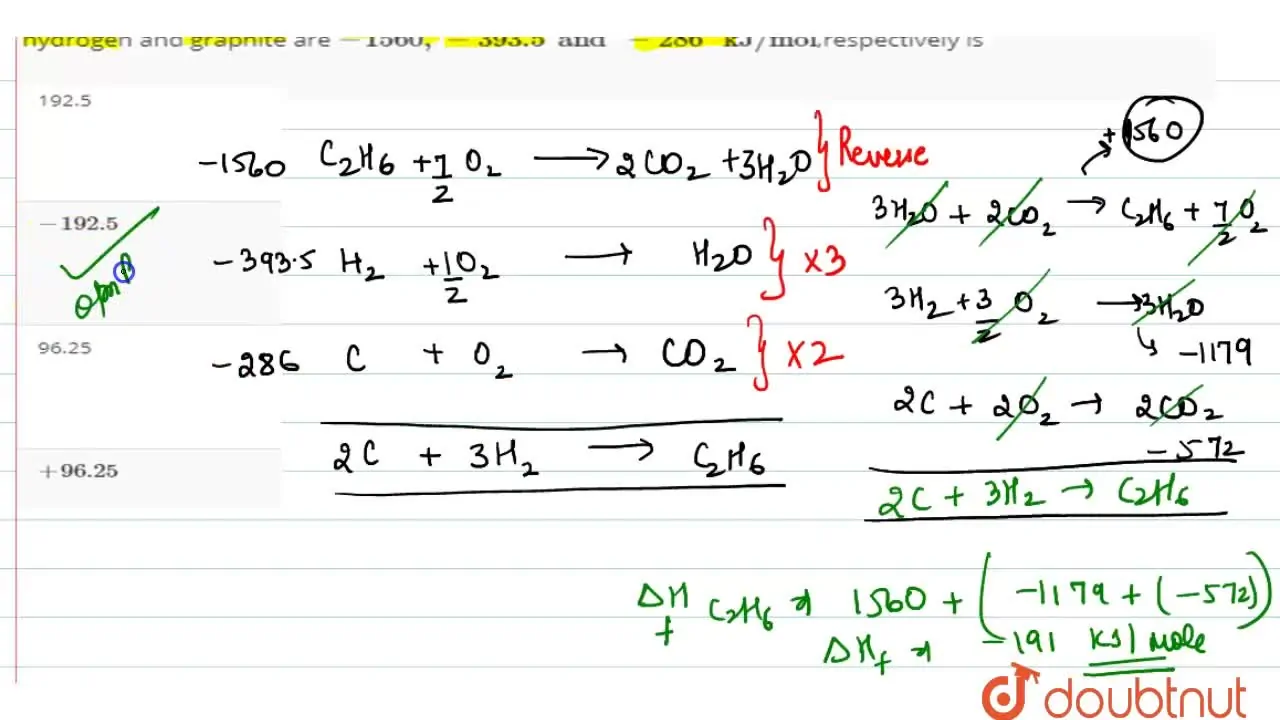 hydrogen and graphite are −1560, − 393.5 and − 286 kJ/mol,respectively is
192.5
−192.5
96.25
+96.25
-1560 C2H6 + 7/2 O2 → 2CO2 + 3H2O } Reverse
-393.5 H2 + 1/2 O2 → H2O } ×3
-286 C + O2 → CO2 } ×2
2C + 3H2 → C2H6
+1560
3H2O + 2CO2 → C2H6 + 7/2 O2
3H2 + 3/2 O2 → 3H2O
-1179
2C + 2O2 → 2CO2
-572
2C + 3H2 → C2H6
ΔHf C2H6 ⇒ 1560 + (-1179 + (-572))
ΔHf ⇒ -191 KJ/mole
doubtnut